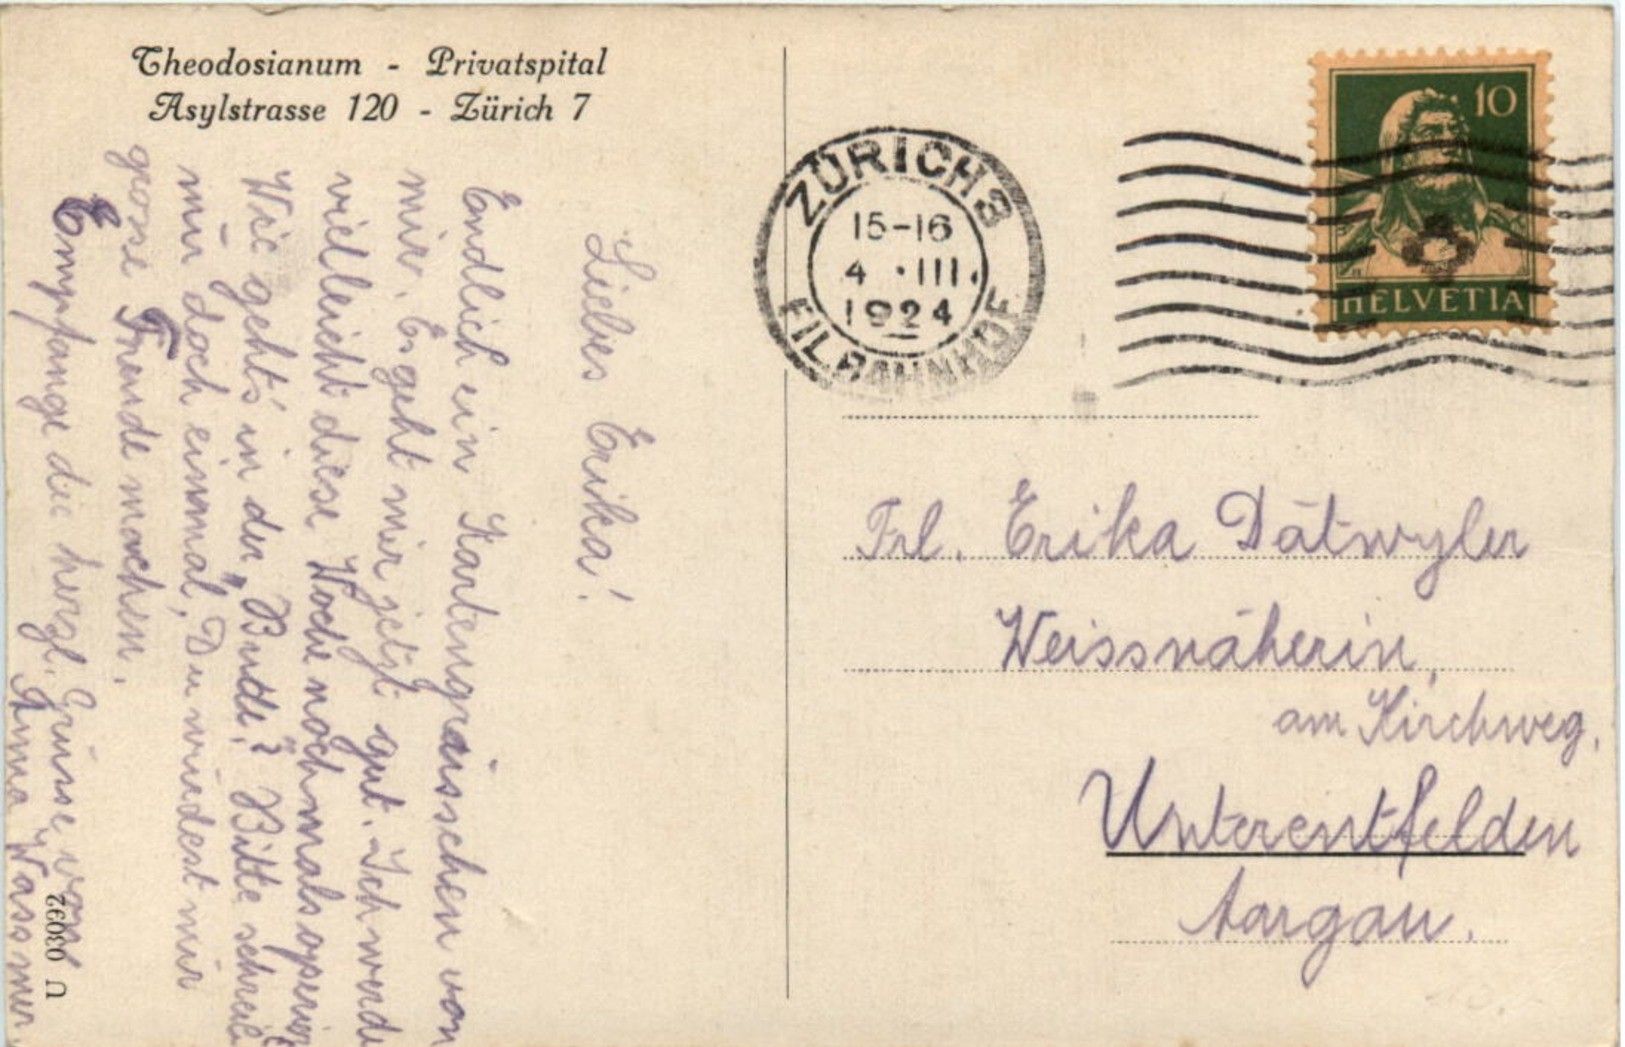 Theodosianum - Privatspital
Asylstrasse 120 - Zürich 7
Liebes Erika!
Endlich ein Kartengrüsschen von
mir. Es geht mir jetzt gut. Ich werde
vielleicht diese Woche nochmals operiert
Wie geht's in der „Bude"? Bitte schreib
mir doch einmal, Du würdest mir
grosse Freude machen.
Empfange die herzl. Grüsse von
Anna Wassmer.
U 03092
ZÜRICH 8
15-16
4 . III.
1924
FILBAHNHOF
10
HELVETIA
Frl. Erika Dätwyler
Weissnäherin,
am Kirchweg.
Unterentfelden
Aargau.